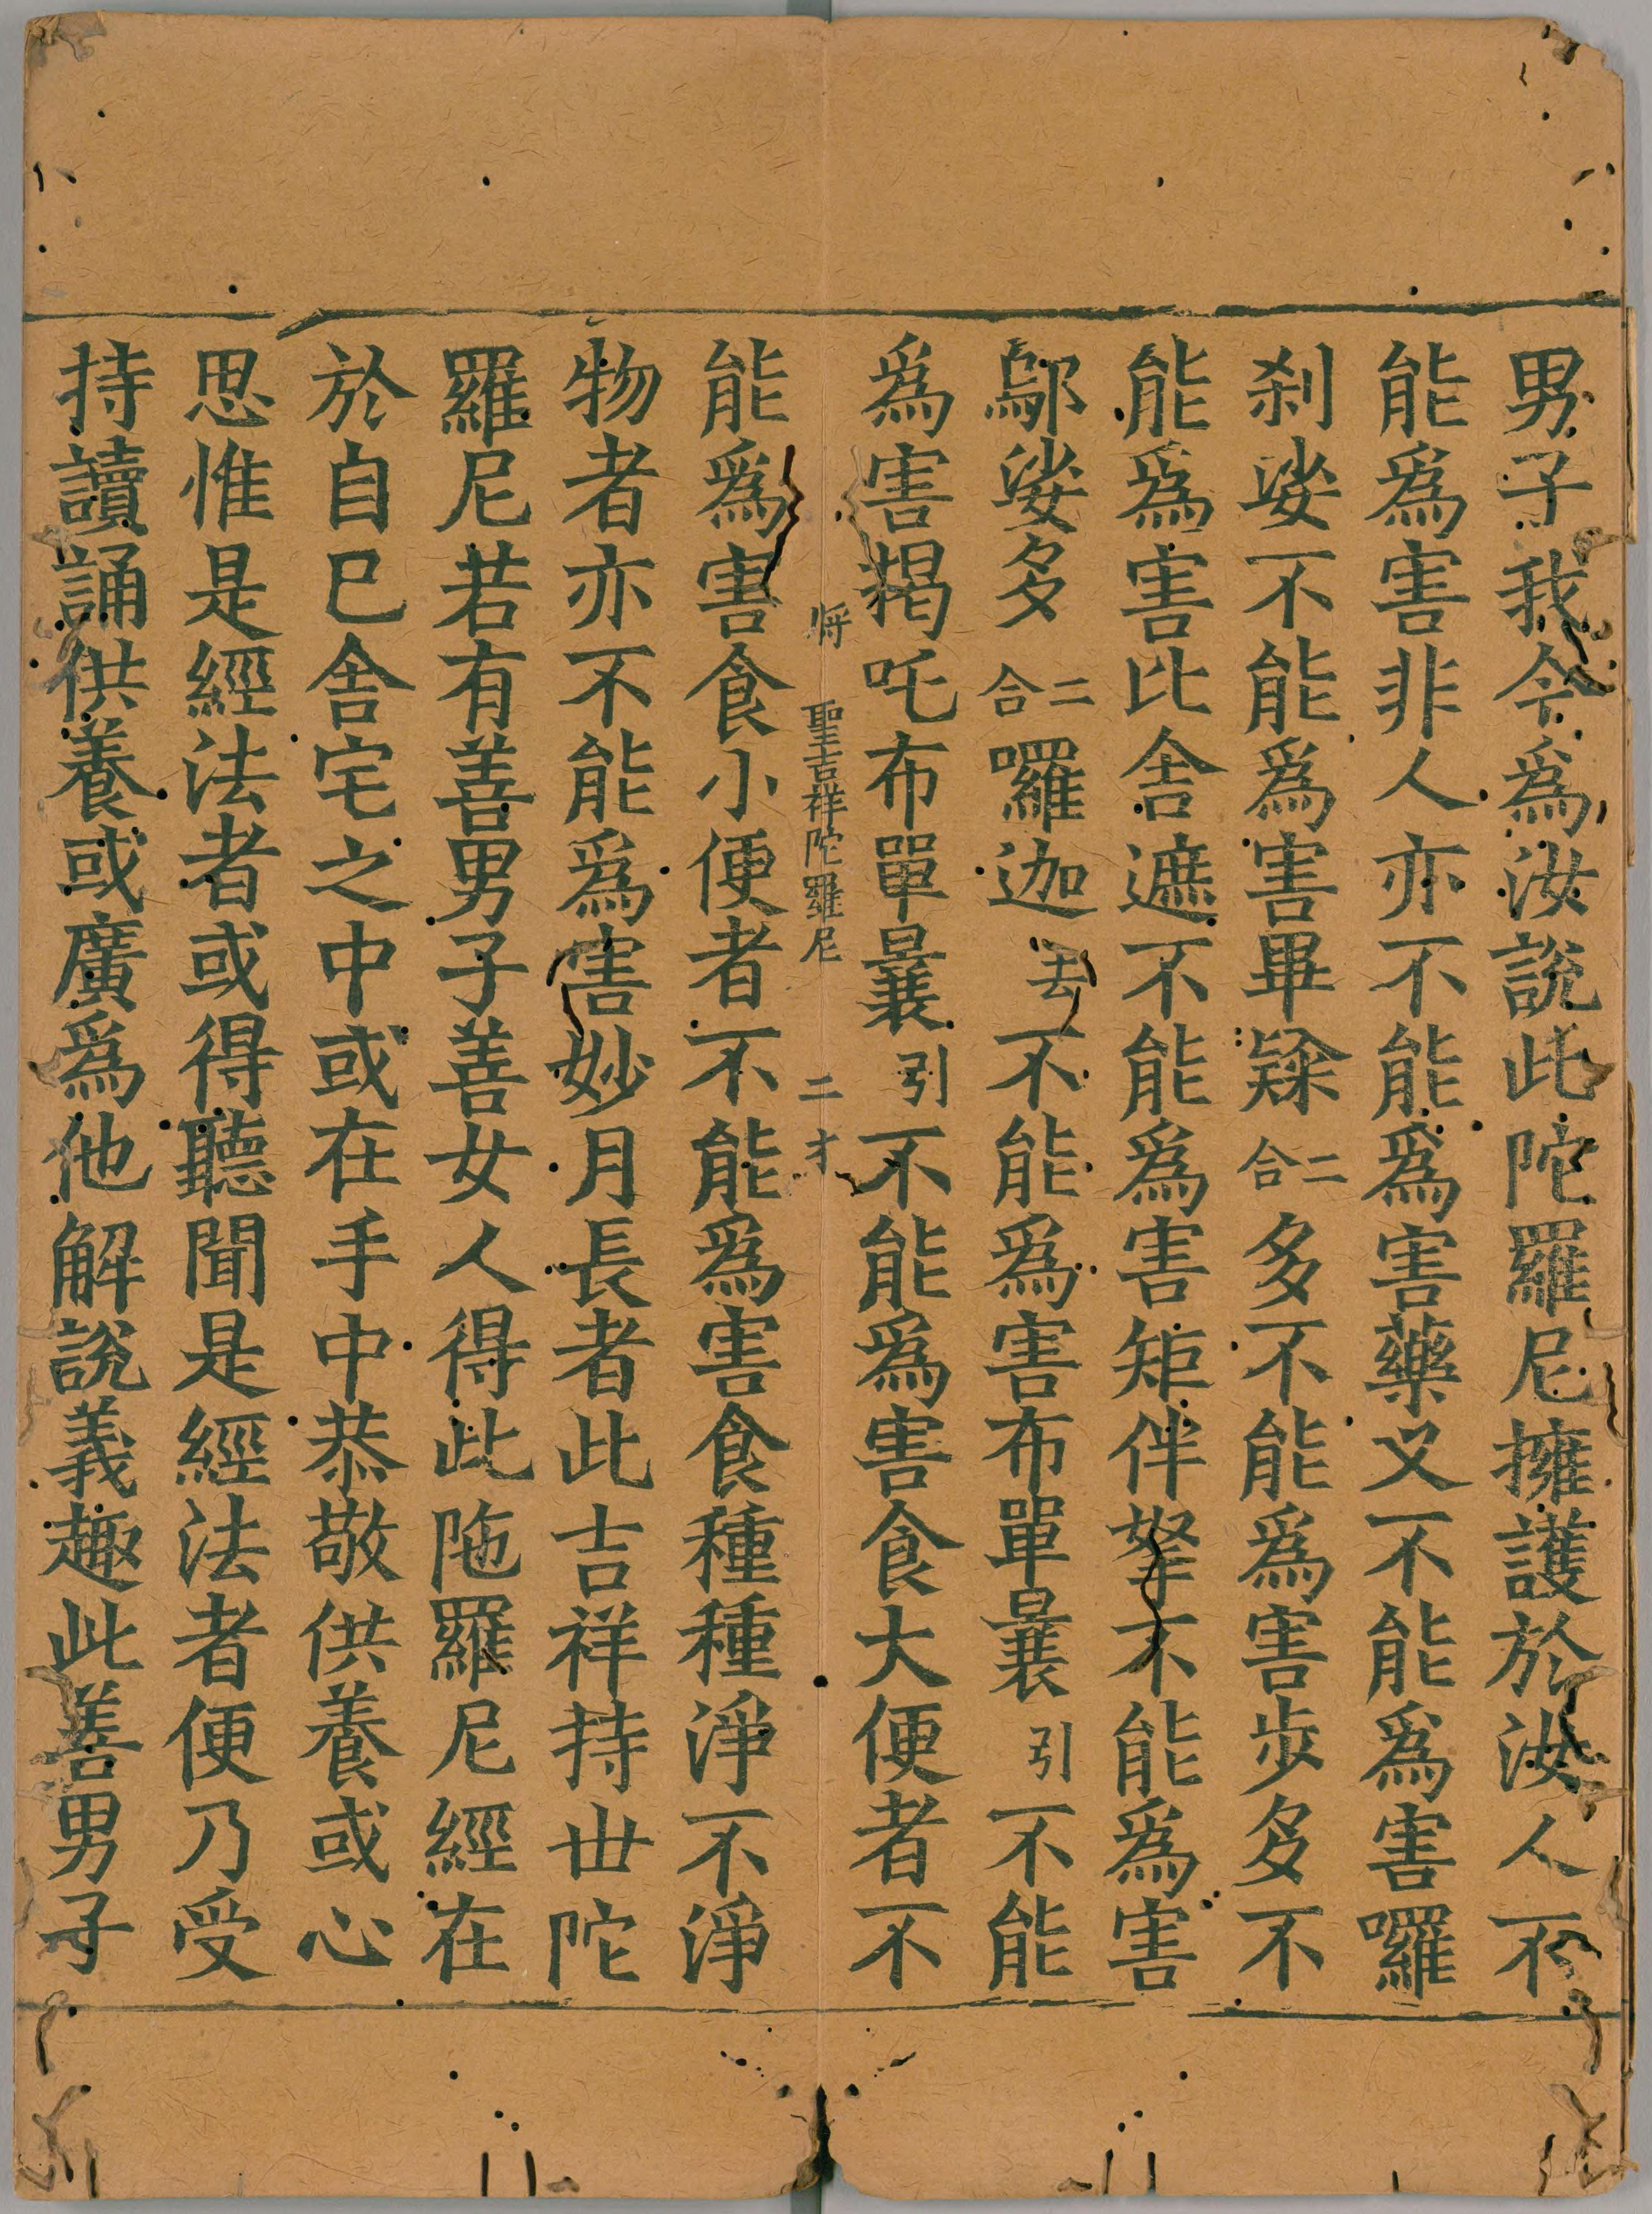 男子我今爲汝說此陀羅尼擁護於汝人不
能爲害非人亦不能爲害藥叉不能爲害囉
刹娑不能爲害畢隸二合多不能爲害步多不
能爲害比舍遮不能爲害矩伴拏不能爲害
鄔娑多二合囉迦去不能爲害布單曩引不能
爲害羯吒布單曩引不能爲害食大便者不
將 聖吉祥陀羅尼 二 才
能爲害食小便者不能爲害食種種淨不淨
物者亦不能爲害妙月長者此吉祥持世陀
羅尼若有善男子善女人得此陁羅尼經在
於自巳舍宅之中或在手中恭敬供養或心
思惟是經法者或得聽聞是經法者便乃受
持讀誦供養或廣爲他解說義趣此善男子